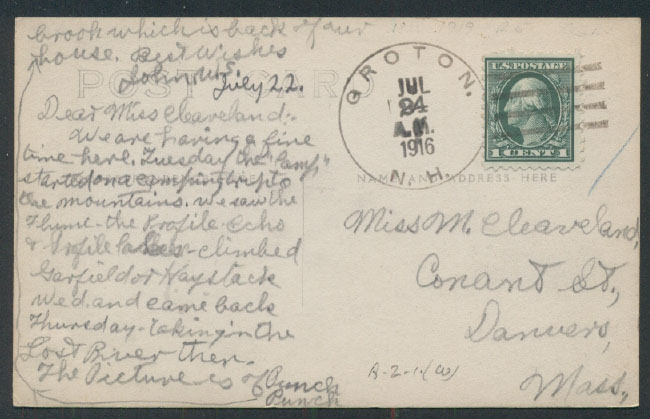 brook which is back of our
house. Best Wishes
John W.E.
POST CARD
July 22.
Dear Miss Cleaveland:-
We are having a fine
time here. Tuesday the "Camp"
started on a camping trip to
the mountains. We saw the
Flume - the Profile - Echo
& Profile Lakes - climbed
Garfield or Haystack
Wed. and came back
Thursday - taking in the
Lost River then.
The Picture is of Punch
Punch
GROTON, N.H.
JUL
24
A.M.
1916
U.S. POSTAGE
1 CENT 1
NAME AND ADDRESS HERE
Miss M. Cleaveland,
Conant St.,
Danvers,
Mass.
A-2-1(W)